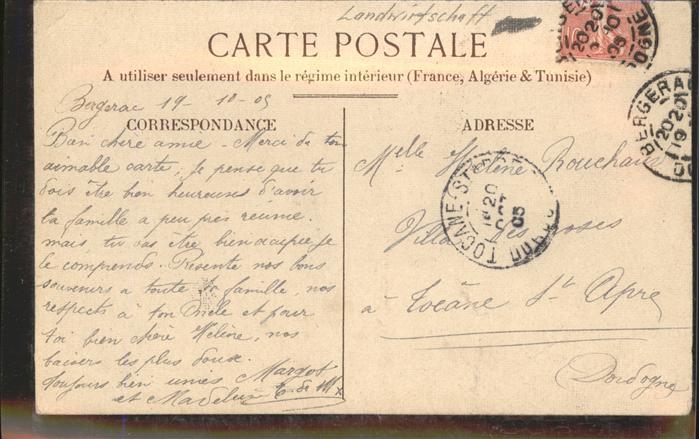 Landwirtschaft
CARTE POSTALE
A utiliser seulement dans le régime intérieur (France, Algérie & Tunisie)
Bergerac 19-10-05
CORRESPONDANCE
Bien chère amie - Merci de ton
aimable carte, je pense que tu
dois être bien heureuse d'avoir
ta famille a peu près réunie.
mais, tu vas être bien occupée, je
le comprends. Présente nos bons
souvenirs a toute ta famille, nos
respects à ton Oncle et pour
toi bien chère Hélène, nos
baisers les plus doux.
toujours bien unies Margot
et Madeleine
ADRESSE
Melle Hélène Rouchaud
Villa des roses
à Tocane St Apre
Dordogne
BERGERAC
20 20
19
DOGNE
20 20
05
TOCANE-ST-APRE
20
OCT
05